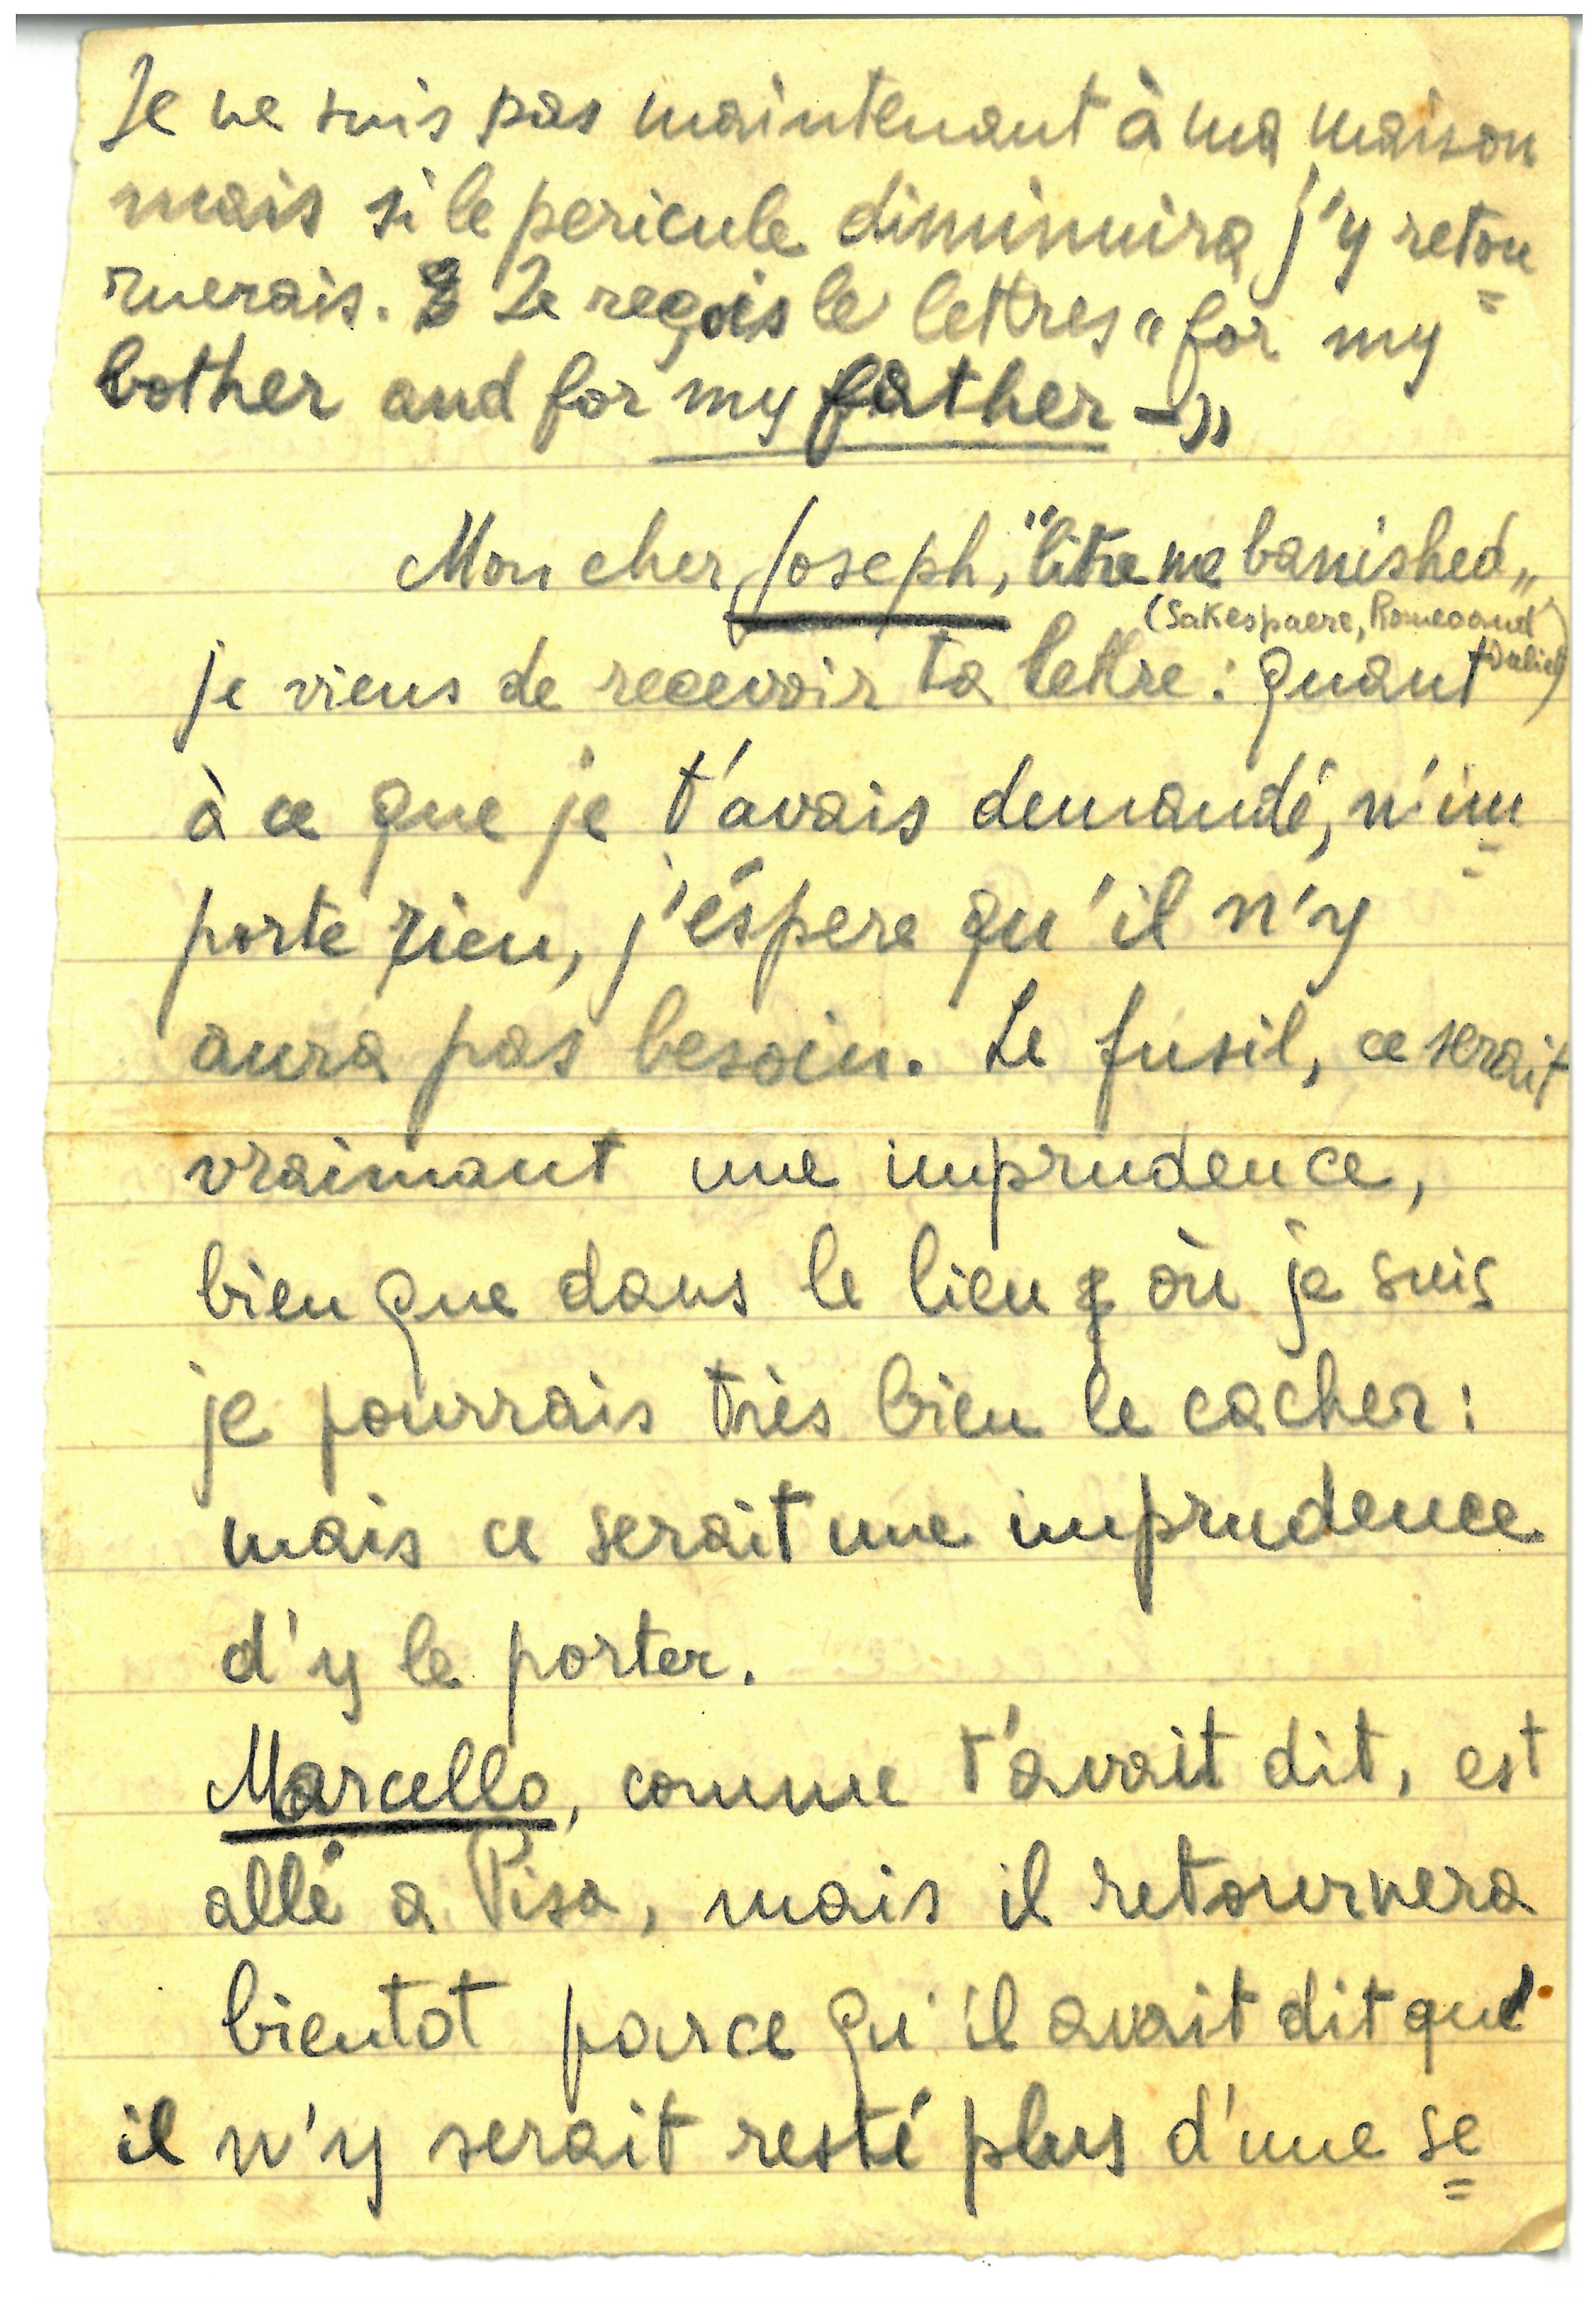 Je ne suis pas maintenant à ma maison
mais si le pericule diminuira j'y retou=
rnerais. Je reçois le lettres "for my
bother and for my father -"
Mon cher Joseph, "like me banished"
(Sakespaere, Romeo and
Juliet)
je viens de recevoir ta lettre : quant
à ce que je t'avais demandé, n'im=
porte rien, j'éspere qu'il n'y
aura pas besoin. Le fusil, ce serait
vraimant une imprudence,
bien que dans le lieu où je suis
je pourrais très bien le cacher :
mais ce serait une imprudence
d'y le porter.
Marcello, comme t'avait dit, est
allé a Pisa, mais il retournera
bientot parce qu'il avait dit que
il n'y serait resté plus d'une se=